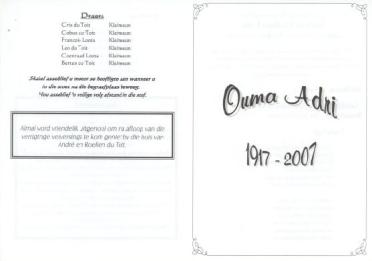 Draers
Cris du Toit Kleinseun
Cobus du Toit Kleinseun
Francois Louw Kleinseun
Leo du Toit Kleinseun
Coenraad Louw Kleinseun
Bertus du Toit Kleinseun
asseblief u motor se hoofligte aan wanneer u
in die stoet na die begraafplaas beweeg.
Hou asseblief 'n veilige volg afstand in die stof.
Almal word vriendelik uitgenooi om na afloop van die
verrigtinge verversings te kom geniet by die huis van
André en Roelien du Toit.
Ouma Adri
1917 - 2007